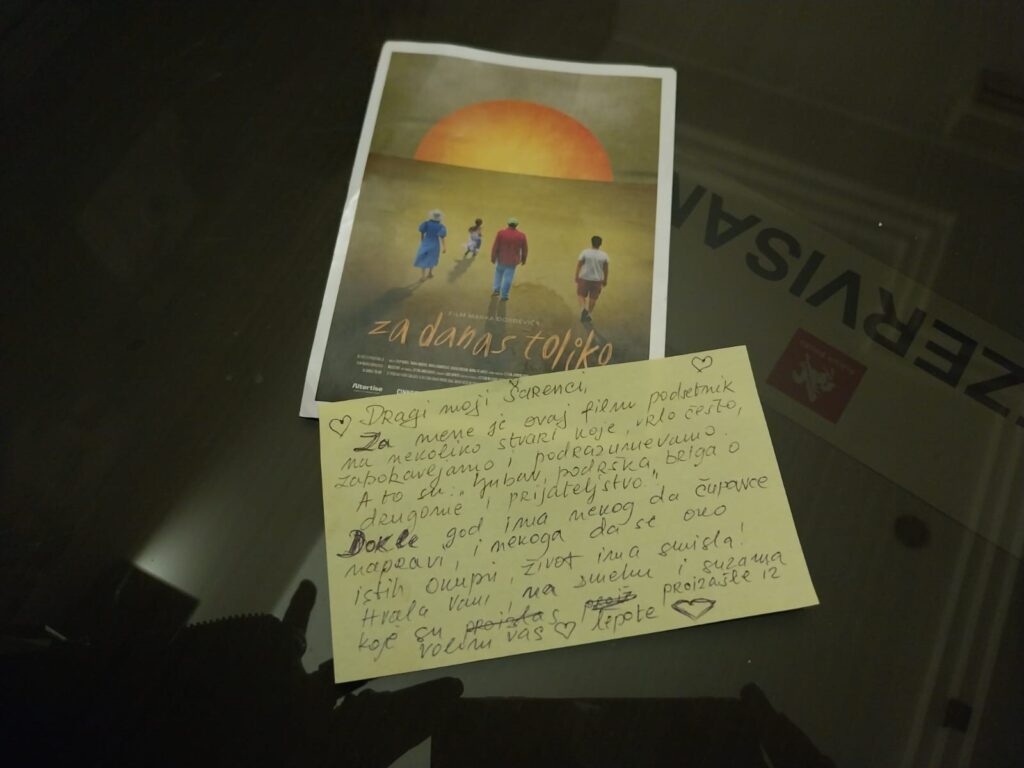 FILM MARKA ĐORĐEVIĆA
za danas toliko
Altertise
ZERVISAN
Dragi moji Šarenci,
Za mene je ovaj film podsetnik
na nekoliko stvari koje, vrlo često,
zaboravljamo i podrazumevamo
A to su: "ljubav, podrška, briga o
drugome i prijateljstvo."
Dokle god ima nekog da čupavce
napravi, i nekoga da se oko
istih okupi, život ima smisla!
Hvala vam, na smehu i suzama
koje su proistas proiz proizašle iz
lepote
volim vas